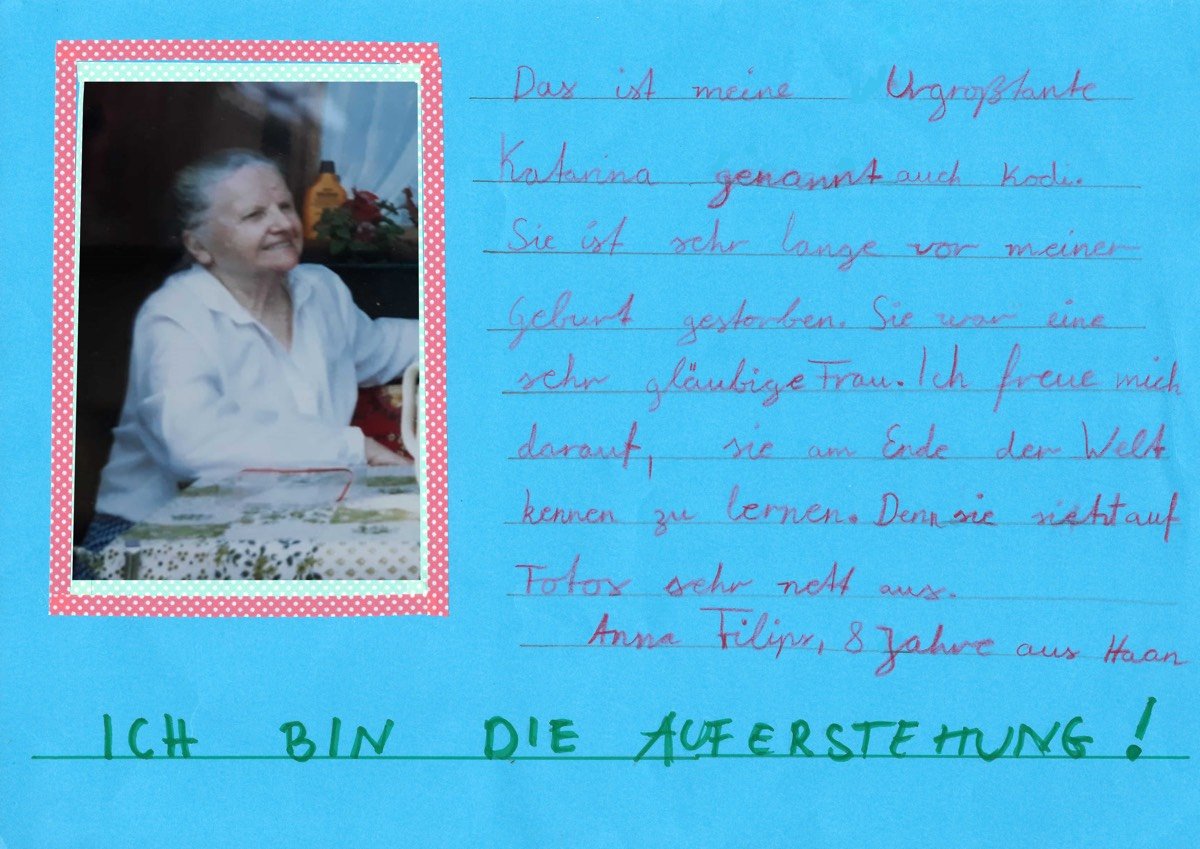 Das ist meine Urgroßtante
Katarina genannt auch Kodi.
Sie ist sehr lange vor meiner
Geburt gestorben. Sie war eine
sehr gläubige Frau. Ich freue mich
darauf, sie am Ende der Welt
kennen zu lernen. Denn sie sieht auf
Fotos sehr nett aus.
Anna Filips, 8 Jahre aus Haan
ICH BIN DIE AUFERSTEHUNG!